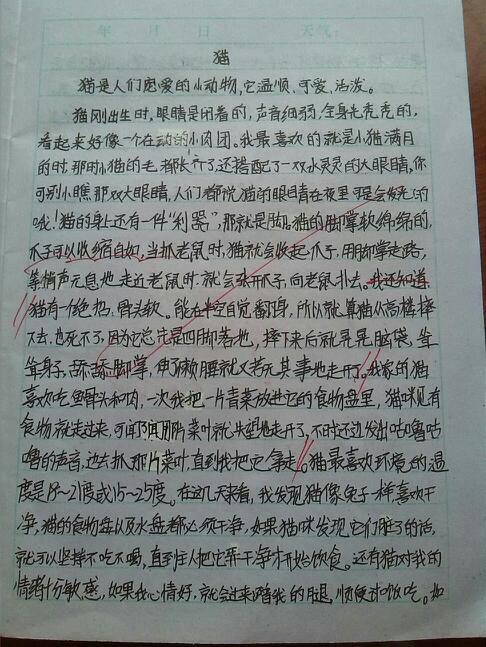 年 月 日 天气：
猫
猫是人们宠爱的小动物，它温顺、可爱、活泼。
猫刚出生时，眼睛是闭着的，声音细弱，全身光秃秃的，
看起来好像一个在动的小肉团。我最喜欢的就是小猫满月
的时，那时小猫的毛都长齐了，还搭配了一双水灵灵的大眼睛，你
可别小瞧那双大眼睛，人们都说猫的眼睛在夜里可是会发光的
哦！猫的身上还有一件“利器”，那就是脚。猫的脚掌软绵绵的，
爪子可以收缩自如，当抓老鼠时，猫就会收起爪子，用脚掌走路，
等悄声无息地走近老鼠时，就会张开爪子，向老鼠扑去。我还知道
猫有一个绝招，骨头软。能在半空自觉翻身，所以就算猫从高楼摔
下去，也死不了，因为它总先是四脚落地，摔下来后就晃晃脑袋，耸
耸身子，舔舔脚掌，伸了懒腰就又若无其事地走开了。我家的猫
喜欢吃鱼骨头和肉，一次我把一片青菜放进它的食物盘里，猫咪见有
食物就走过来，可闻 那片菜叶就失望地走开了，不时还发出咕噜咕
噜的声音，边去抓那片菜叶，直到我把它拿走。猫最喜欢环境的温
度是18～21度或15～25度。在这几天来看，我发现猫像兔子一样喜欢干
净，猫的食物盘以及水盘都必须干净，如果猫咪发现它们脏了的话，
就可以坚持不吃不喝，直到主人把它弄干净才开始饮食。还有猫对我的
情绪十分敏感，如果我心情好，就会过来蹭我的腿，顺便讨饭吃。如